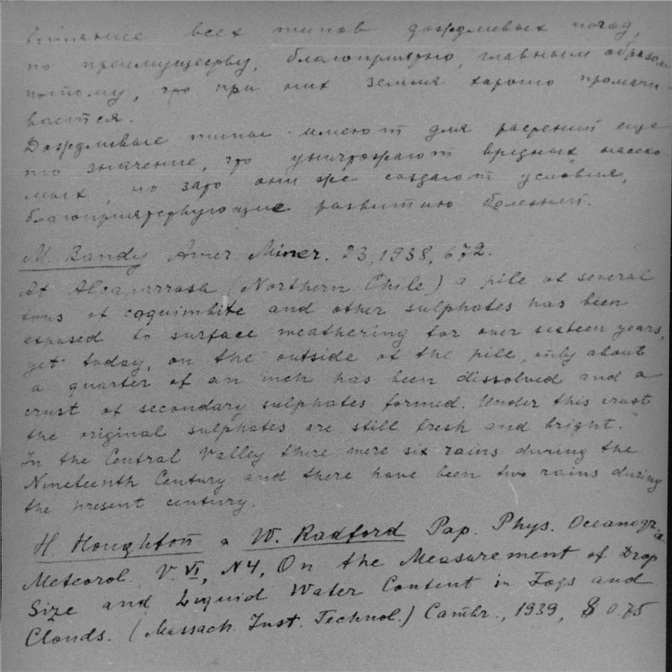 влияние всех типов дождливых погод,
по преимуществу, благоприятно, главным образом
потому, что при них земля хорошо промачи-
вается.
Дождливые типы имеют для растений еще
то значение, что уничтожают вредных насеко-
мых, но зато они же создают условия,
благоприятствующие развитию болезней.
M. Bandy Amer. Miner. 23, 1938, 672.
At Alcaparrosa (Northern Chile) a pile of several
tons of coquimbite and other sulphates has been
exposed to surface weathering for over sixteen years,
yet today, on the outside of the pile, only about
a quarter of an inch has been dissolved and a
crust of secondary sulphates formed. Under this crust
the original sulphates are still fresh and bright.
In the Central Valley there were six rains during the
Nineteenth Century and there have been two rains during
the present century.
H. Houghton a W. Radford Pap. Phys. Oceanogr. a
Meteorol. V. VI, N4, On the Measurement of Drop
Size and Liquid Water Content in Fogs and
Clouds. (Massach. Inst. Technol.) Cambr., 1939, $ 0.75